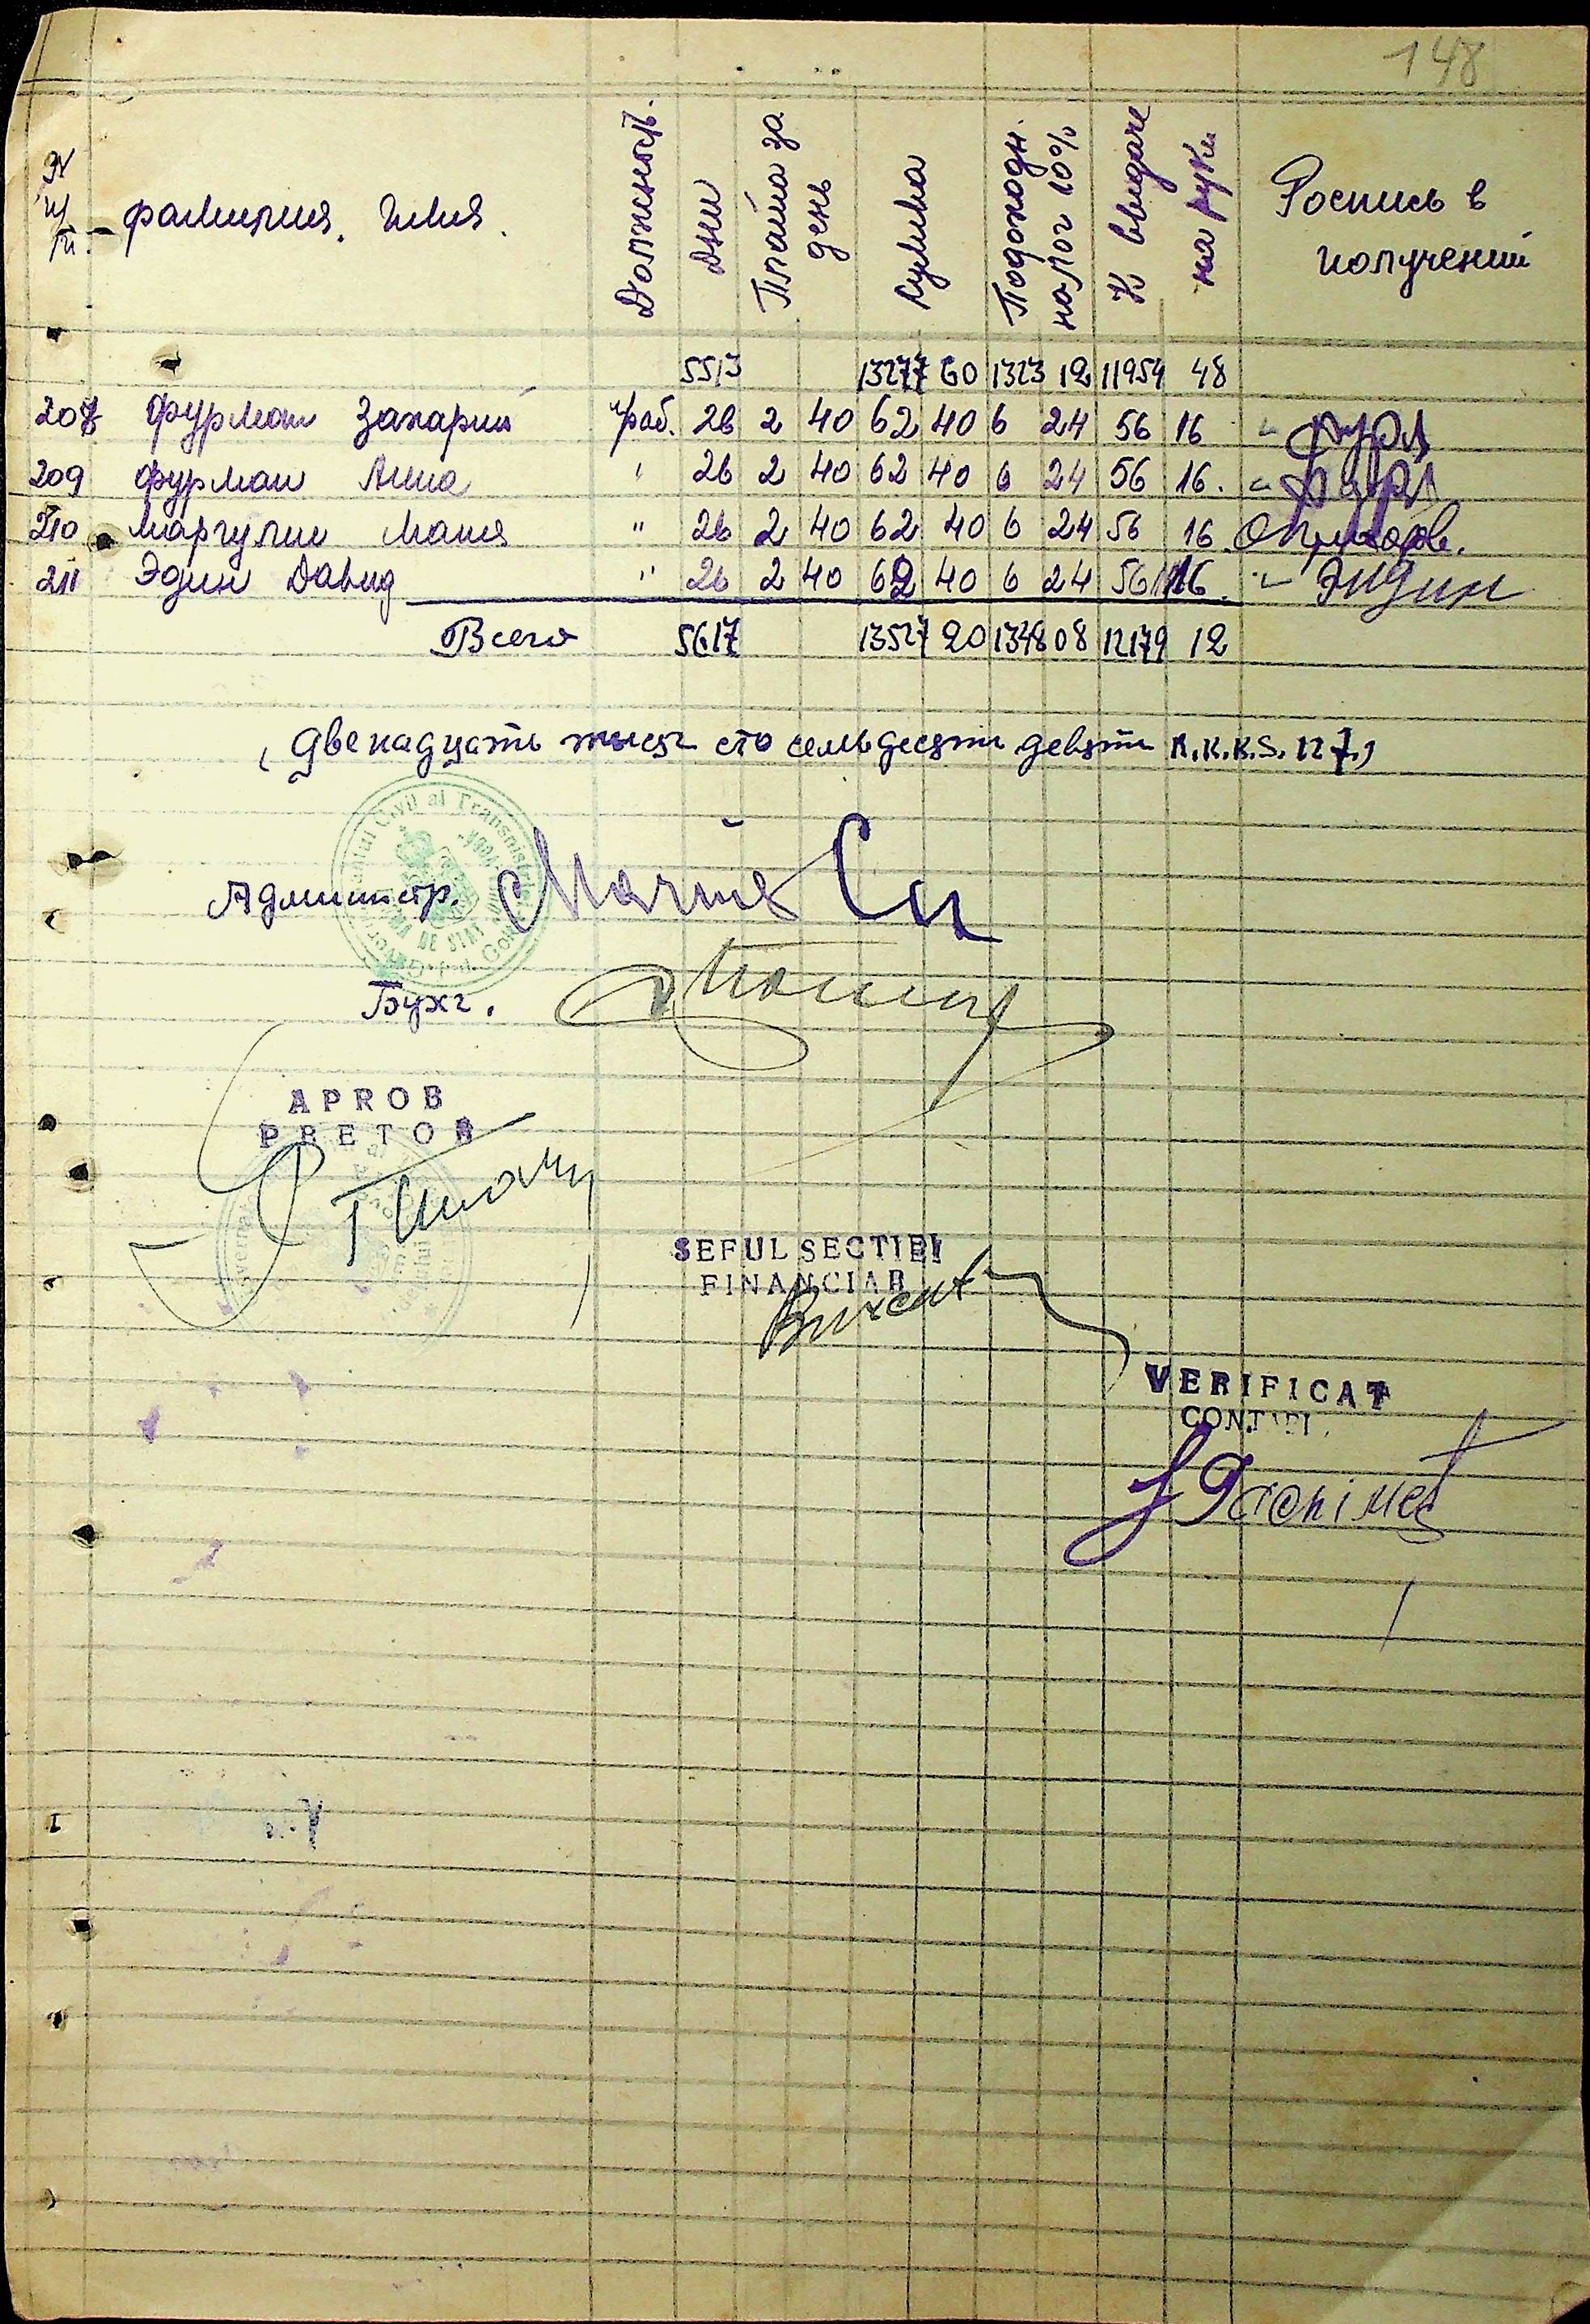 148
№ п/п. фамилия, имя. Должность. Дни Плата за день Сумма Подоходн. налог 10% К выдаче на руки Роспись в получении
5513 13277 60 1323 12 11954 48
208 Фурман Захарий Чраб. 26 2 40 62 40 6 24 56 16 " Фурм
209 Фурман Анна " 26 2 40 62 40 6 24 56 16. "
210 Маргулис Маня " 26 2 40 62 40 6 24 56 16
211 Эдин Давид " 26 2 40 62 40 6 24 56 16. " Эидин
Всего 5617 13527 20 1348 08 12179 12
(Двенадцать тысяч сто семьдесят девять R.K.K.S. 12 )
Guvernamantul Civil al Transnistriei
DE STAT
Админстр.
Бухг.
APROB
PRETOR
SEFUL SECTIEI
FINANCIAR
VERIFICAT